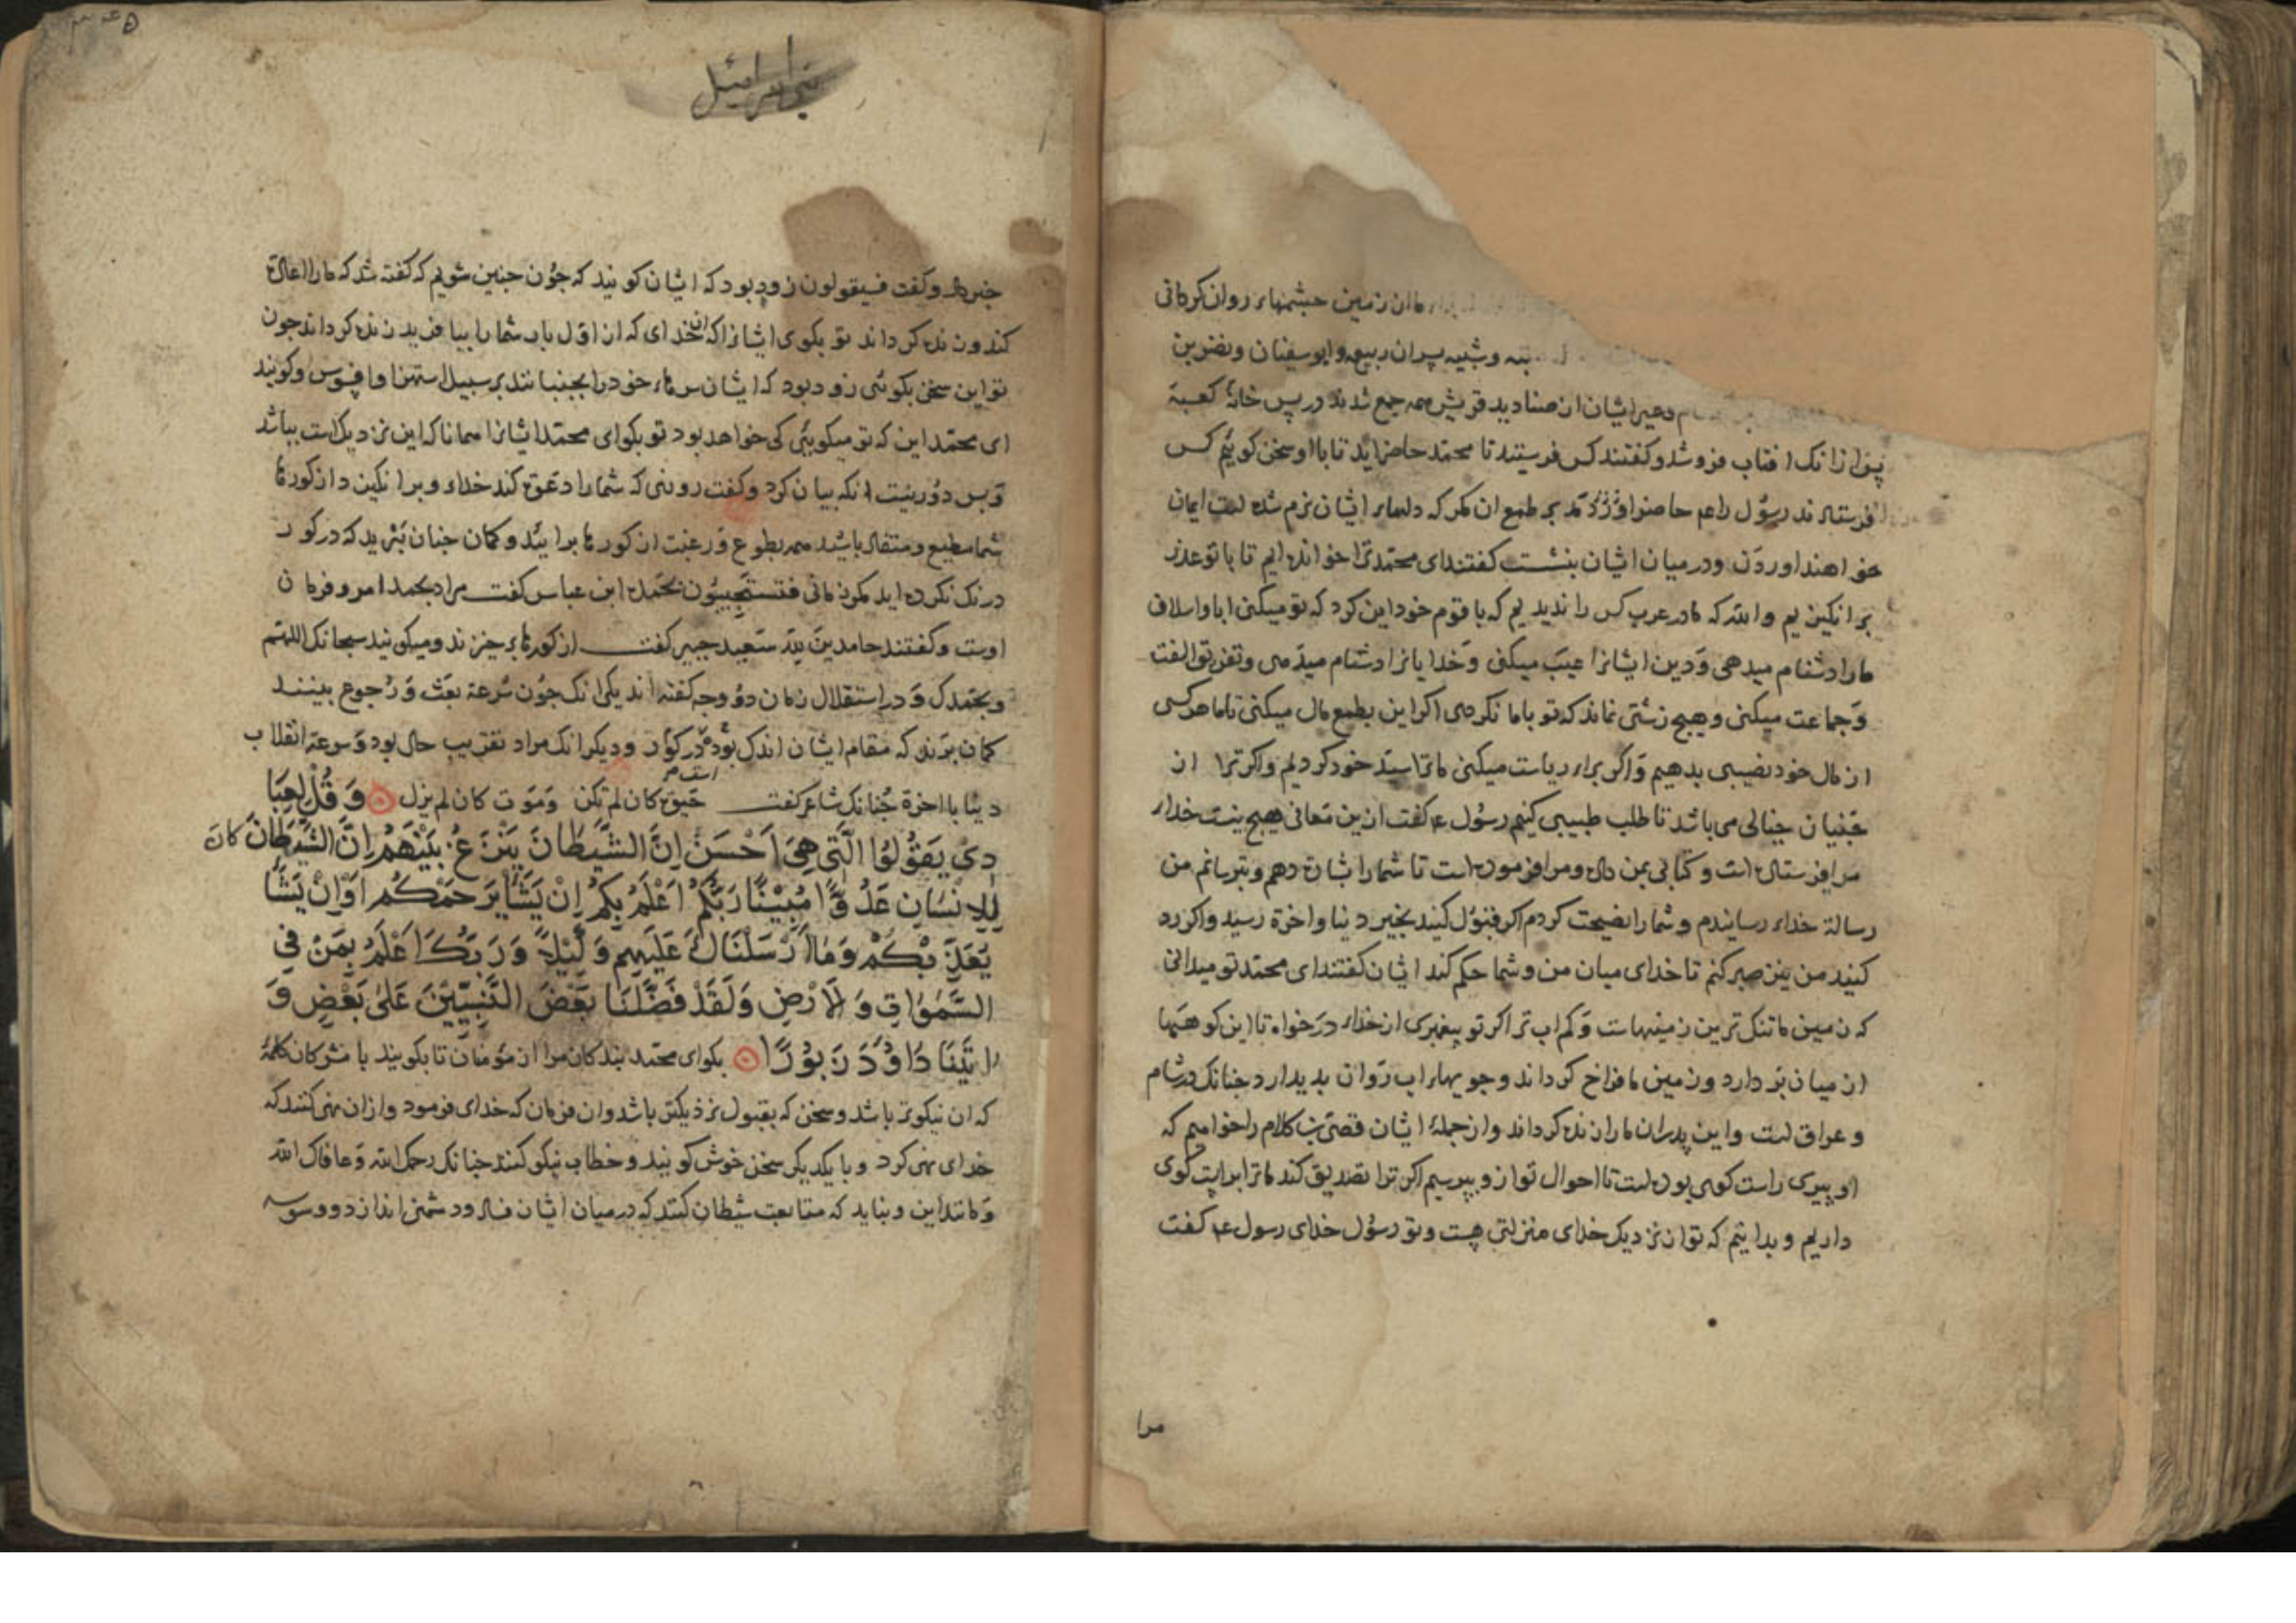 ما ان زمین چشمهاء روان کردانی
وشیبه پسران ربیعه وابوسفیان ونضربن
وغیر ایشان از صنادید قریش همه جمع شدند در پس خانهٔ کعبة
پس ازانک افتاب فروشد وکفتند کس فرستید تا محمد حاضر اید تا با او سخن کوئیم کس
فرستادند رسول را عم حاضر اوردند بر طمع ان مکر که دلهاء ایشان نرم شده است ایمان
خواهند اوردن ودرمیان ایشان بنشست کفتند ای محمد ترا خوانده ایم تا با تو عذر
برانکیزیم والله که مادر عرب کس را ندیدیم که با قوم خود این کرد که تو میکنی ابا واسلاف
مارا دشنام میدهی ودین ایشانرا عیب میکنی وخدایانرا دشنام میدهی وتفریق الفت
وجماعت میکنی وهیچ زشتی نماند که تو باما نکردی اکر این بطمع مال میکنی تا ما هرکسی
از مال خود نصیبی بدهیم واکر براء ریاست میکنی ما ترا سید خود کردیم واکر ترا از
جنیان خیالی می باشد تا طلب طبیبی کنیم رسول ع کفت ازین معانی هیچ نیست خداء
مرا فرستاده است وکتابی بمن داده ومرا فرموده است تا شما را بشارت دهم وبترسانم من
رسالة خداء رسانیدم وشما را نصیحت کردم اکر قبول کنید بخیر دنیا واخرة رسید واکر رد
کنید من نیز صبر کنم تا خدای میان من وشما حکم کند ایشان کفتند ای محمد تو میدانی
که زمین ما تنک ترین زمینهاست وکم اب تر اکر تو پیغمبری از خداء درخواه تا این کوهها
از میان بر دارد وزمین ما فراخ کرداند وجویهاء اب روان بدید ارد چنانک در شام
وعراق است واین پدران ما را زنده کرداند واز جملهٔ ایشان قصی بن کلاب را خواهیم که
او پیری راست کوی بوده است تا احوال تو ازو بپرسیم اکر ترا تصدیق کند ما ترا براست کوی
داریم وبدانیم که ترا نزدیک خدای منزلتی هست وتو رسول خدای رسول ع کفت
مرا
بنی اسرائیل
خبر داد وکفت فسیقولون زود بود که ایشان کویند که چون چنین شویم که کفته شد که مارا اعادة
کند وزنده کرداند تو بکوی ایشانرا که ان خدای که از اول باب شما را بیافرید زنده کرداند چون
تو این سخن بکوئی زود بود که ایشان سرهاء خود را بجنبانند بر سبیل استهزا وافسوس وکویند
ای محمد این که تو میکوئی کی خواهد بود تو بکو ای محمد ایشانرا همانا که این نزدیک است بباشد
وبس دور نیست انکه بیان کرد وکفت روزی که شما را دعوة کند خداء وبرانکیزد از کورها
شما مطیع ومنقاد باشید همه بطوع ورغبت از کورها برائید وکمان چنان برید که در کور
درنک نکرده اید مکر زمانی فتستجیبون بحمده ابن عباس کفت مراد بحمد امر وفرمان
اوست وکفتند حامدین لله سعید جبیر کفت از کورها بر خیزند ومیکویند سبحانک اللهم
وبحمدک ودر استقلال زمان دو وجه کفته اند یکی انک چون سرعة بعث ورجوع بینند
کمان برند که مقام ایشان اندک بوده در کور ودیکر انک مراد تقریب حال بود وسرعة انقلاب
دنیا با اخرة چنانک شاعر کفت حیوة کان لم تکن وموت کان لم یزل وَقُلْ لِعِبَا
دِی یَقُوْلُوْا الَّتِی هِیَ اَحْسَنُ اِنَّ الشَّیْطَانَ یَنْزَغُ بَیْنَهُمْ اِنَّ الشَّیْطَانَ کانَ
لِلْاِنْسَانِ عَدُوًّا مُبِیْنًا رَبُّکُمْ اَعْلَمُ بِکُمْ اِنْ یَشَأْ یَرْحَمْکُمْ اَوْ اِنْ یَشَأْ
یُعَذِّبْکُمْ وَمَا اَرْسَلْنَاکَ عَلَیْهِم وَکِیْلاً وَرَبُّکَ اَعْلَمُ بِمَنْ فِی
السَّمٰوَاتِ وَالْاَرْضِ وَلَقَدْ فَضَّلْنَا بَعْضَ النَّبِیِّیْنَ عَلٰی بَعْضٍ وَ
اٰتَیْنَا دَاوُدَ زَبُوْرًا بکو ای محمد بندکان مرا از مؤمنان تا بکویند با مشرکان کلمهٔ
که ان نیکوتر باشد وسخن که بقبول نزدیکتر باشد وان فرمان که خدای فرمود وازان نهی کنند که
خدای نهی کرد وبا یکدیکر سخن خوش کویند وخطاب نیکو کنند چنانک رحمک الله وعافاک الله
ومانند این ونباید که متابعت شیطان کنند که درمیان ایشان فساد ودشمنی اندازد ووسوسه